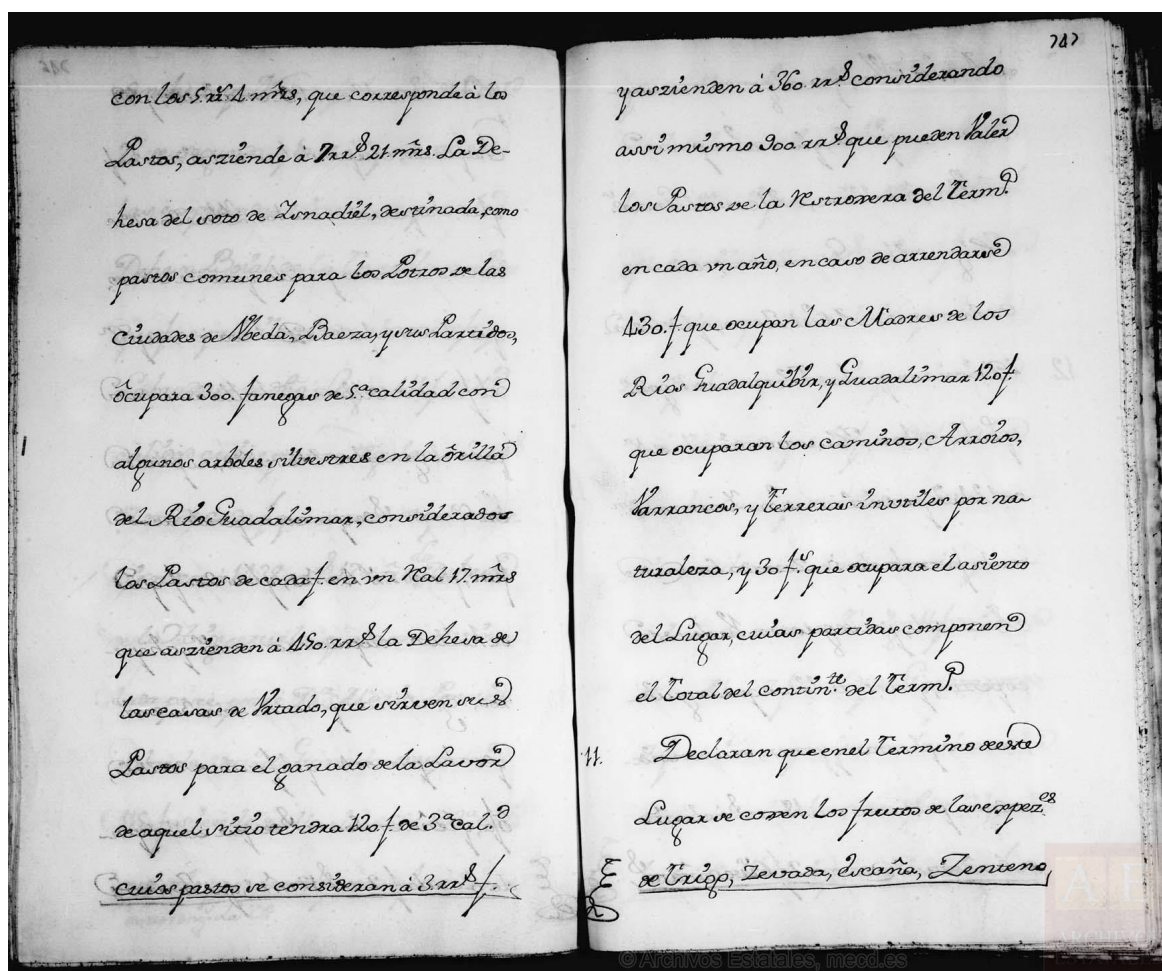 con los 5. rrˢ 4. mrs̃, que corresponde à los
Pastos, asziende à 7 rrˢ 21 mrs̃. La De-
hesa del soto de Zsnadiel, destinada, como
pastos comunes para los Potros de las
Ciudades de Vbeda, Baeza, y sus Partidos,
ôcupara 300. fanegas de 5.ª calidad con
algunos arboles silvestres en la ôrilla
del Rio Guadalimar, considerados
los Pastos de cada f. en vn Real 17. mrs̃
que aszienden à 450. rrˢ la Dehesa de
las casas de Vrtado, que sirven sus
Pastos para el ganado de la Lavor
de aquel sitio tendra 120 f. de 3.ª cal.ᵈ
cuios pastos se consideran à 3 rrˢ f.
242
y aszienden à 360. rrˢ considerando
assi mismo 900 rrˢ que pueden Valer
los Pastos de la Rstroxera del Term.º
en cada vn año, en caso de arrendarse
430. f. que ocupan las Madres de los
Rios Guadalquibir, y Guadalimar 120 f.
que ocuparan los caminos, Arroios,
Varrancos, y Terreras inutiles por na-
turaleza, y 30 f.ˢ que ocupara el asiento
del Lugar, cuias partidas componen
el Total del contin.ᵗᵉ del Term.º
11. Declaran que en el Termino de este
Lugar se cojen los frutos de las espez.ᵉˢ
de Trigo, Zevada, Escaña, Zenteno,
© Archivos Estatales, mecd.es